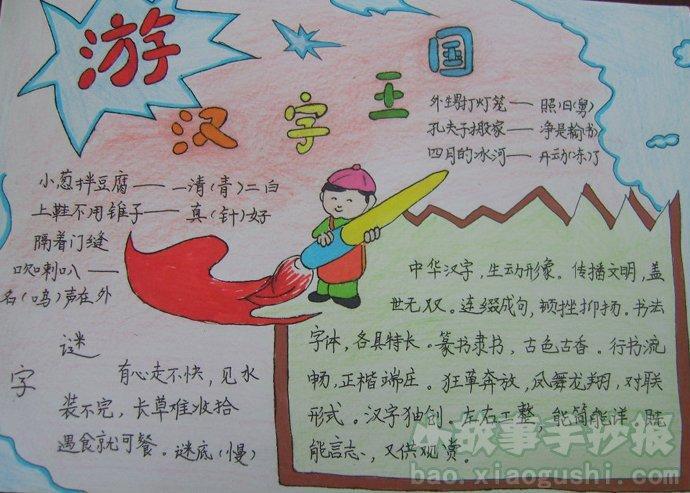 游
汉字王国
外甥打灯笼——照旧(舅)
孔夫子搬家——净是输(书)
四月的冰河——开动(冻)了
小葱拌豆腐——一清(青)二白
上鞋不用锥子——真(针)好
隔着门缝
吹喇叭——
名(鸣)声在外
字谜
有心走不快，见水
装不完，长草难收拾
遇食就可餐。谜底(慢)
中华汉字，生动形象。传播文明，盖
世无双。连缀成句，顿挫抑扬。书法
字体，各具特长。篆书隶书，古色古香。行书流
畅，正楷端庄。狂草奔放，凤舞龙翔，对联
形式。汉字独创。左右工整。能简能洋。既
能言志，又供观赏。
小故事手抄报
bao.xiaogushi.com